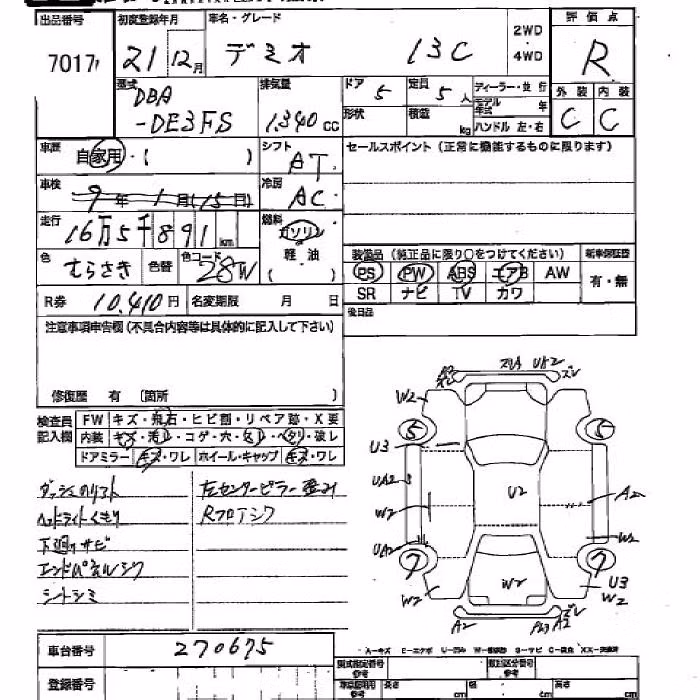 出品番号 初度登録年月 車名・グレード 2WD 評価点
7017 21 12月 デミオ 13C 4WD R
型式 排気量 ドア 定員 ディーラー・並行 外装 内装
DBA 5 5人 モデル年式 年 C C
-DE3FS 1,340cc 形状 積載 kg ハンドル 左・右
車歴 自家用・( ) シフト AT セールスポイント(正常に機能するものに限ります)
車検 9年 1月(15日) 冷房 AC
走行 16万5千891km 燃料 ガソリン
軽油
( )
色 むらさき 色替 色コード 28W
装備品(純正品に限り○をつけてください) 新車保証書
PS PW ABS エアB AW 有・無
SR ナビ TV カワ
R券 10,410円 名変期限 月 日
後日品
注意事項申告欄(不具合内容等は具体的に記入して下さい)
修復歴 有 (箇所 )
検査員記入欄 FW キズ・飛石・ヒビ割・リペア跡・X要
内装 キズ・汚レ・コゲ・穴・ ・ヘタリ・破レ
ドアミラー キズ・ワレ ホイール・キャップ キズ・ワレ
ダッシュのリフト 左センターピラー歪み
ヘッドライトくもり
下廻りサビ
エンドパネルシワ
シートシミ
W2 U2 ズレ
5 5
U3
UA2
U2
A2
W2
W2
UA2
7 7
W2 W2 U3
W2
A2 A2 ズレ
車台番号 270675
A-キズ E-エクボ
登録番号